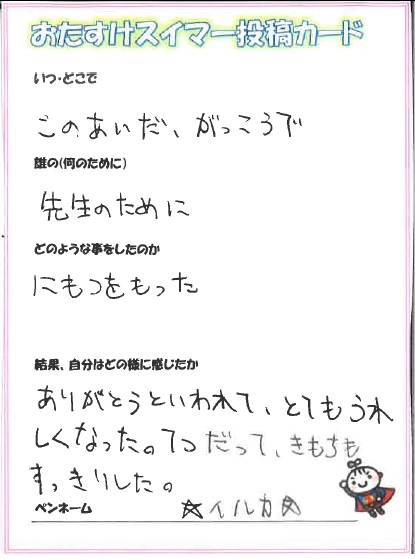 おたすけスイマー投稿カード
いつ・どこで
このあいだ、がっこうで
誰の(何のために)
先生のために
どのような事をしたのか
にもつをもった
結果、自分はどの様に感じたか
ありがとうといわれて、とてもうれ
しくなった。てつだって、きもちも
すっきりした。
ペンネーム
☆イルカ☆